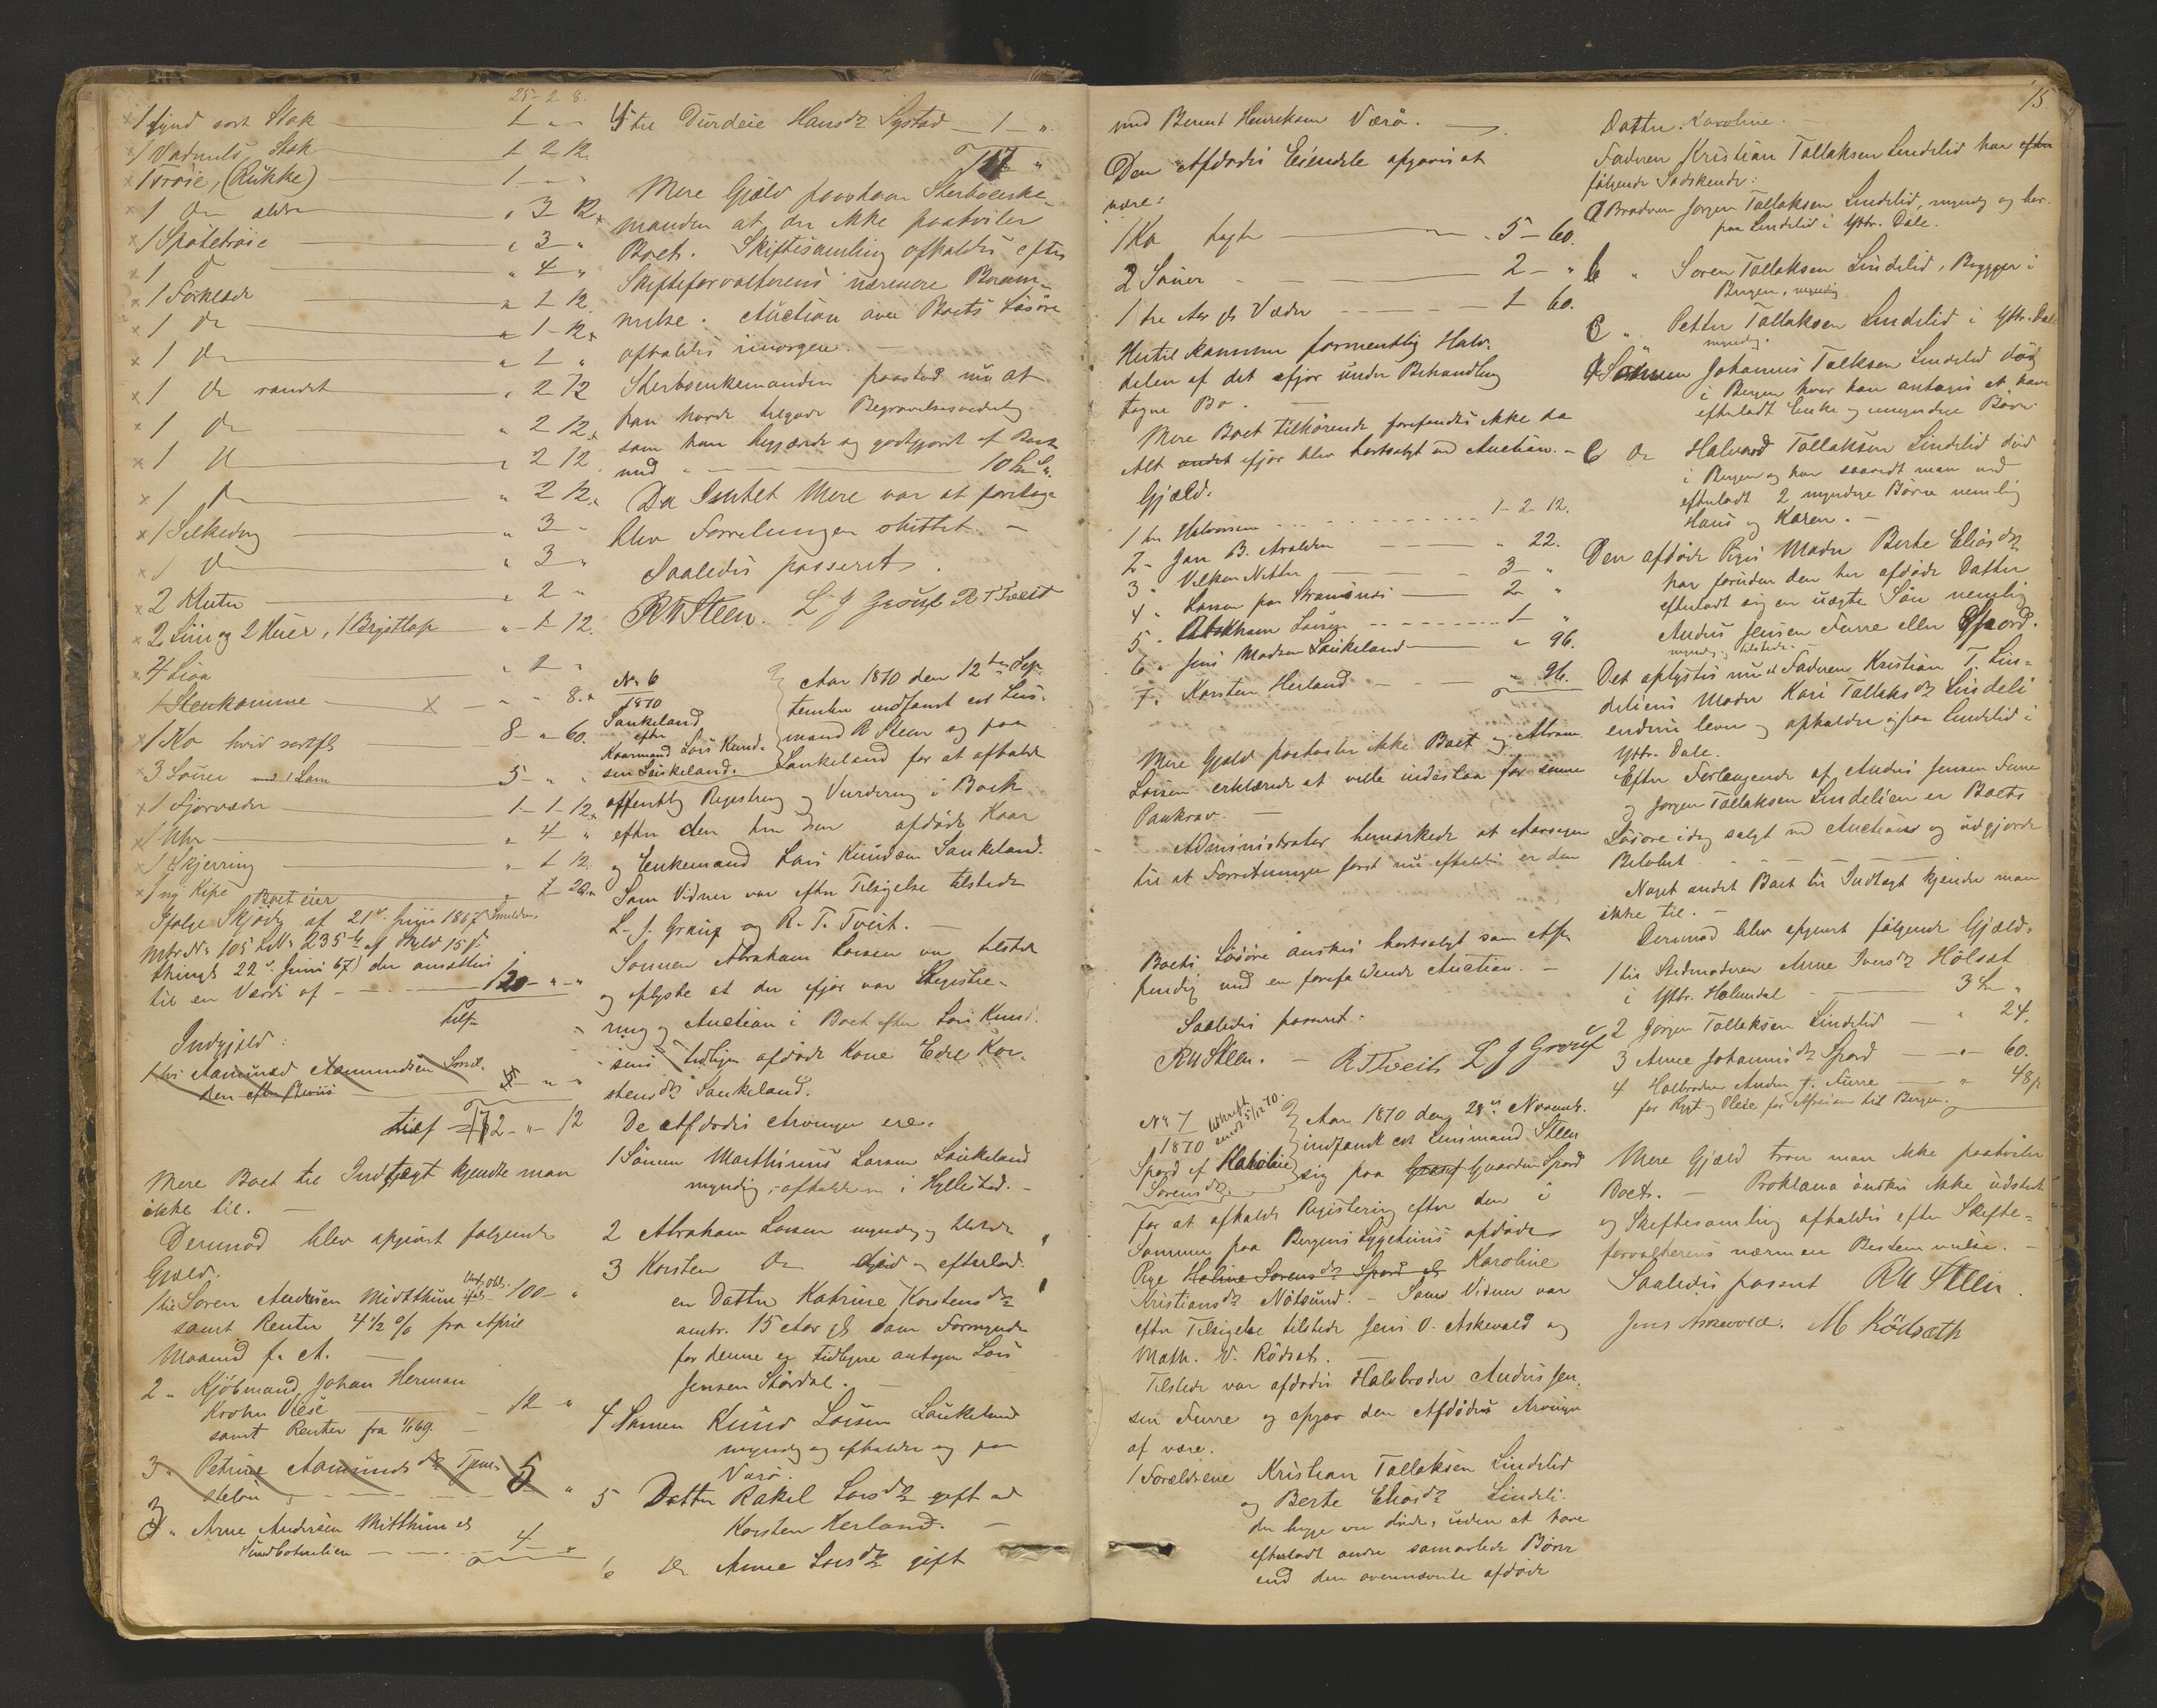 25 - 2 8.
1 tynd sort Stak — 1 - "
1 Vadmels Stak — 1 2 12.
1 Trøie, (Rukke) — 1 - "
1 do ældre — " 3 12
1 Spøtetrøie — " 3 "
1 do — " 4 "
1 Forklæde — " 1 12.
1 do — " 1 - 12
1 do — " 1 "
1 do randet — " 2 12
1 do — " 2 12
1 do — " 2 12.
1 do — " 2 12
1 Silkedug — " 3 -
1 do — " 3 "
2 Kluter — " 2 "
2 Liin og 2 Huer, 1 Brystlap — " 1 12.
4 — " 2 "
1 Stenkomme — " - 8.
1 Ko hvid sortfl — 8 - " 60.
3 Souer med 1 Lam — 5 - "
1 Fjorvæder — 1 - 1 - 12
1 Uhr — " 4 - "
1 Skjerring — " 1 12.
1 ny Kipe — " 1 20
Boet eier
Ifølge Skjøde af 21de Juni 1867
Mtr. No 105 LNo 235 af Skyld 15
thingl. 22de Juni 67) der ansættes
til en Værdi af — 120 - " - "
Tilf
Indgjeld:
1 hos Aamund Aamundsen
den efter Beviis — 5 - " - "
tilsf 172 - " - 12
Mere Boet til Indtægt kjendte man
ikke til. —
Derimod blev opgivet følgende
Gjæld.
1 til Søren Andersen Midtthun 100 - "
samt Renter 4 1/2 % fra April
Maaned f. A. —
2 " Kjøbmand Johan Herman
Krohn Vese — 12 "
samt Renter fra 1/1 69. —
3 " Petrine Aamundsdr Tjøn-
stebø — 5 "
3 " Arne Andersen Mitthun
— 4 - "
5 til Durdeie Hansdr Systad — 1 — "
117 "
Mere Gjæld paastaar Sterboenke-
manden at der ikke paahviler
Boet. Skiftesamling afholdes efter
Skifteforvalterens nærmere Beram-
melse. Auction over Boets Løsøre
afholdes imorgen. —
Sterboenkemanden paastod nu at
han havde tilgode Begravelsesvederlag
som han begjærede sig godtgjort af Boet
med — 10 Spd.
Da Intet Mere var at foretage
blev Forretningen sluttet. —
Saaledes passeret.
R N Steen. L J Grøup R T Tveit
No 6
1870
Saukeland
efter
Kaarmand Lars Knud-
sen Saukeland.
Aar 1870 den 12te Sep-
tember indfandt sig Lens-
mand R Steen sig paa
Saukeland for at afholde
offentlig Registrering og Vurdering i Boet
efter den her den afdøde Kaar
og Enkemand Lars Knudsen Saukeland.
Som Vidner var efter Tilsigelse tilstede
L. J. Grøup og R. T. Tveit. —
Sønnen Abraham Larsen var tilstede
og oplyste at der ifjor var Registre-
ring og Auction i Boet efter Lars Knud-
sens tidligere afdøde Kone Edel Kor-
stensdr Saukeland.
De Afdødes Arvinger ere.
1 Sønnen Marthinus Larsen Saukeland
myndig, opholder i Hyllestad. —
2 Abraham Larsen myndig, tilstede
3 Korsten do død og efterlad.
en Datter Katrine Korstensdr
omtr. 15 Aar gl som Formynder
for denne er tidligere antagen Lars
Jensen Størdal. —
4 Sønnen Knud Larsen Saukeland
myndig og opholder sig paa
Værø.
5 Datter Rakel Larsdr gift med
Korsten Herland. —
6 do Anne Larsdr gift
15.
med Berent Henriksen Værø. —
Den Afdødes Eiendele opgaves at
være:
1 Ko — 5 - 60.
2 Souer — 2 - "
1 tre Aar gl Væder — 1 60.
Hertil kommer formentlig Halv-
delen af det ifjor under Behandling
tagne Bo. —
Mere Boet tilhørende forefandtes ikke da
Alt andet ifjor blev bortsolgt ved Auction. —
Gjæld.
1 til Halvorsen — 1 - 2 12.
2 - Jan B. Arvalden — " 22.
3 " — 3 "
4 " Larsen paa Strømsnæs — 2 "
5 " Abraham Larsen — 1 "
6 " Jens Madsen Saukeland — " 96.
7. Korsten Herland — " 96.
Mere Gjæld paahviler ikke Boet og Abram
Larsen erklærede at ville indestaa for samme
Paakrav. —
Administrator bemærkede at Aarsagen
til at Forretningen først nu afholdes er den
Boets Løsøre ønskes bortsolgt som Afhæn-
pendig ved en forefaldende Auction. —
Saaledes passeret.
R N Steen. — R T Tveit L J Grøup
No 7
1870
Udskrift
sendt 5/12 70.
Spord ef Haboline
Sørensdr
Aar 1870 den 28de Novembr.
indfandt sig Lensmand Steen
sig paa Gaarden Spord
for at afholde Registrering efter den i
Sommer paa Bergens Sygehuus afdøde
Pige Holine Sørensdr Spord gl Karoline
Kristiansdr Nøtsund. — Som Vidner var
efter Tilsigelse tilstede Jens O. Askevold og
Math. N. Rødset. —
Tilstede var afdødes Halvbroder Anders Jen-
sen Furre og opgav den Afdødes Arvinger
at være.
1 Forældrene Kristian Tollaksen Lindelid
og Berte Eliasdr Lindeli.
der begge ere døde, uden at have
efterladt andre samavlede Børn
end den ovennævnte afdøde
Datter. Karoline. —
Faderen Kristian Tollaksen Lindelid har efter
følgende Sødskende:
a Broderen Jørgen Tollaksen Lindelid, myndig og bor-
paa Lindelid i Yttr. Dale.
b " Søren Tollaksen Lindelid, Brygger i
Bergen, myndig
c " Petter Tollaksen Lindelid i Yttr. Dale
myndig.
d Johannes Tolleksen Lindelid død
i Bergen hvor han antages at have
efterladt Enke og umyndige Børn.
e do Halvard Tollaksen Lindelid død
i Bergen og har saavidt man ved
efterladt 2 myndige Børn nemlig
Hans og Karen. —
Den afdøde Piges Moder Berte Eliasdr
har foruden den her afdøde Datter
efterladt sig en uægte Søn nemlig
Anders Jensen Furre eller Spord.
myndig, tilstede. —
Det oplystes nu at Faderen Kristian T. Lin-
deliens Moder Kari Tollaksdr Lindeli
endnu lever og opholder sig paa Lindelid i
Yttr. Dale.
Efter Forlangende af Anders Jensen Furre
og Jørgen Tollaksen Lindelien er Boets
Løsøre idag solgt ved Auction og udgjorde
Beløbet — — —
Noget andet Boet til Indtægt kjender man
ikke til. —
Derimod blev opgivet følgende Gjæld.
1 til Stedmoderen Anne Iversdr Holsæt
i Yttr. Holmedal — 3 Spd "
2 Jørgen Tollaksen Lindelid — " 24.
3 Anne Johannesdr Spord — " - 60.
4 Halvbroder Anders J. Furre — " 48
for Røgt og Pleie for Afreisen til Bergen.
Mere Gjæld troer man ikke paahviler
Boet. — Proklama ønskes ikke udstedt
og Skiftesamling afholdes efter Skifte-
forvalterens nærmere Bestemmelse. —
Saaledes passeret R N Steen.
Jens Askevold. M Rødseth